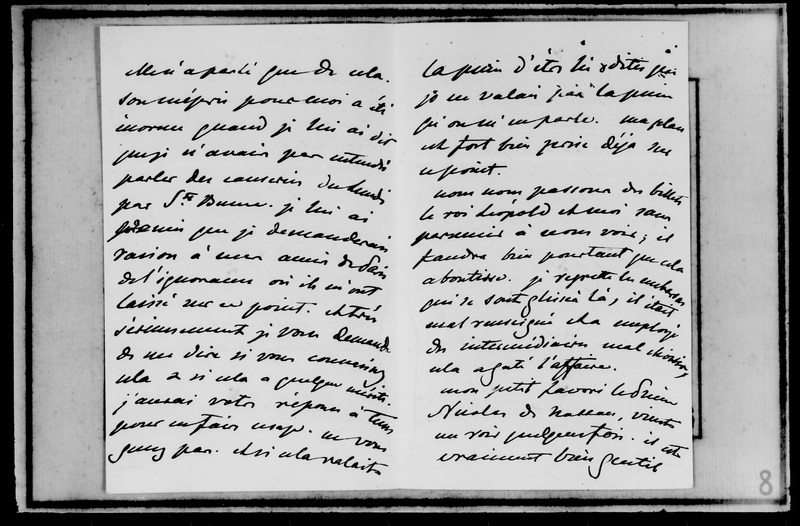 M'en a parlé que de cela.
son mépris pour moi a été
énorme quand je lui ai dit
que je n'avais pas entendu
parler des causeries du lundi
par Ste Beuve. je lui ai
promis que je demanderais
raison à mes amis de
de l'ignorance où ils m'ont
laissé sur ce point. et très
sérieusement je vous demande
de me dire si vous connaissez
cela & si cela a quelque mérite.
j'aurai votre réponse à tems
pour en faire usage. ne vous
gênez pas. et si cela valait
la peine d'être lu & dites que
je ne valais pas la peine
qu'on m'en parle. ma place
est fort bien prise déjà sur
ce point.
nous nous passons des billets
le roi Léopold et moi sans
parvenir à nous voir; il
faudra bien pourtant que cela
aboutisse. je regrette les embarras
qui se sont glissés là, il était
mal renseigné et a employé
des intermédiaires mal choisis,
cela a gâté l'affaire.
mon petit favori le Prince
Nicolas de Nassau, vient
me voir quelquefois. il est
vraiment bien gentil
8